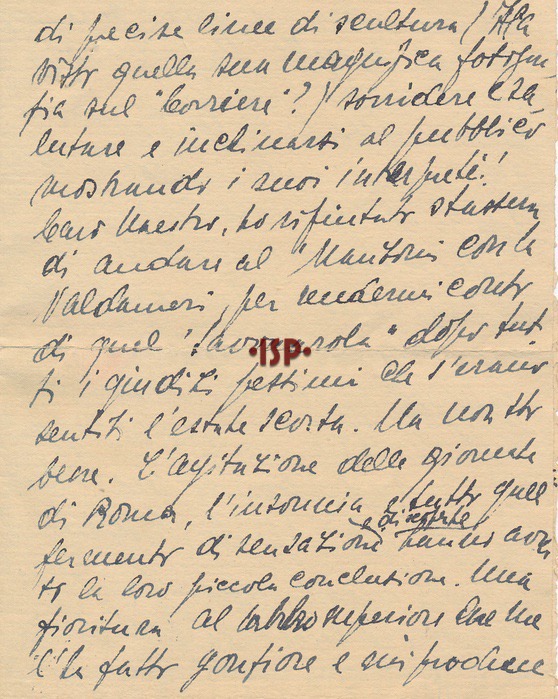 di precise linee di scultura! (Ha
visto quella sua magnifica fotogra-
fia sul "Corriere"?) sorridere e sa-
lutare e inchinarsi al pubblico
mostrando i suoi interpreti!
Caro Maestro, ho rifiutato stassera
di andare al "Manzoni con la
Valdameri, per rendermi conto
di quel "Savonarola" dopo tut-
ti i giudizi pessimi che s'erano
sentiti l'estate scorsa. Ma non sto
bene. L'agitazione delle giornate
di Roma, l'insonnia e tutto quel
fermento di sensazioni e discorse hanno avu-
to la loro piccola conclusione. Una
fioritura al labbro superiore che me
l'ha fatto gonfiare e mi produce
·ISP·